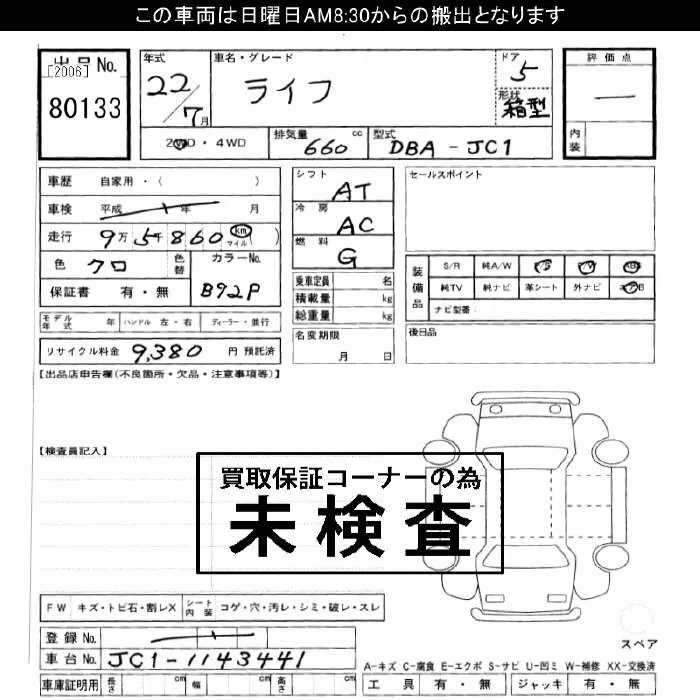 この車両は日曜日AM8:30からの搬出となります
出品No. [2006] 80133
年式 22/7月
車名・グレード ライフ
ドア 5
形状 箱型
評価点 —
内装
2WD・4WD
排気量 660 cc
型式 DBA-JC1
車歴 自家用・( )
車検 平成 年 月
走行 9万5千860 km マイル ( )
色 クロ 色替 カラーNo. B92P
保証書 有・無
モデル年式 年 ハンドル 左・右 ディーラー・並行
リサイクル料金 9,380 円 預託済
シフト AT
冷房 AC
燃料 G
乗車定員 名
積載量 kg
総重量 kg
名変期限 月 日
セールスポイント
装備品 S/R 純A/W P/S P/W ABS
純TV 純ナビ 革シート 外ナビ エアB
ナビ型番:
後日品
【出品店申告欄(不良箇所・欠品・注意事項等)】
【検査員記入】
買取保証コーナーの為
未検査
FW キズ・トビ石・割レX シート内装 コゲ・穴・汚レ・シミ・破レ・スレ
登録No.
車台No. JC1-1143441
車庫証明用 長さ cm 幅 cm 高さ cm
スペア
A-キズ C-腐食 E-エクボ S-サビ U-凹ミ W-補修 XX-交換済
工具 有・無 ジャッキ 有・無